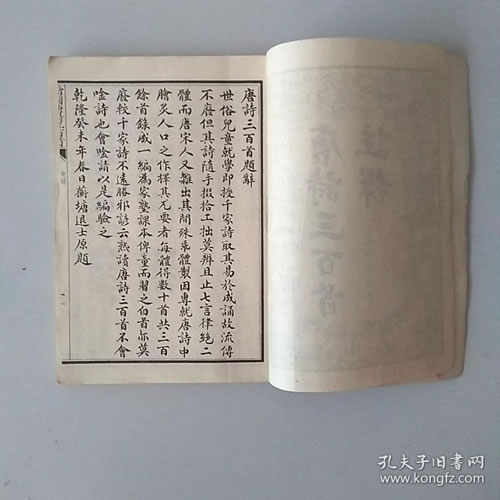 唐詩三百首題辭
世俗兒童就學即授千家詩取其易於成誦故流傳
不廢但其詩隨手掇拾工拙莫辨且止七言律絕二
體而唐宋人又雜出其間殊乖體製因專就唐詩中
膾炙人口之作擇其尤要者每體得數十首共三百
餘首錄成一編為家塾課本俾童而習之白首亦莫
廢較千家詩不遠勝邪諺云熟讀唐詩三百首不會
唫詩也會唫請以是編驗之
乾隆癸未年春日蘅塘退士原題
三百首
孔夫子旧书网
www.kongfz.com